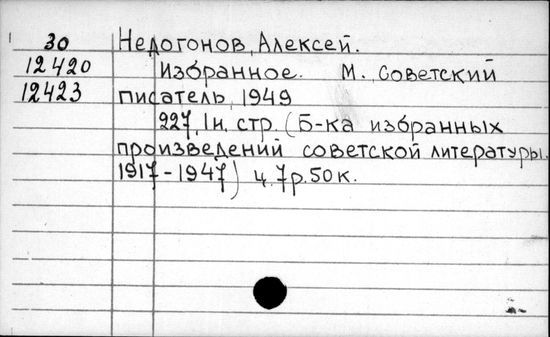 30 Недогонов, Алексей.
12420 Избранное. М. Советский
12423 писатель, 1949
227, 1 н. стр. (Б-ка избранных
произведений советской литературы.
1917-1947) ц. 7р. 50к.